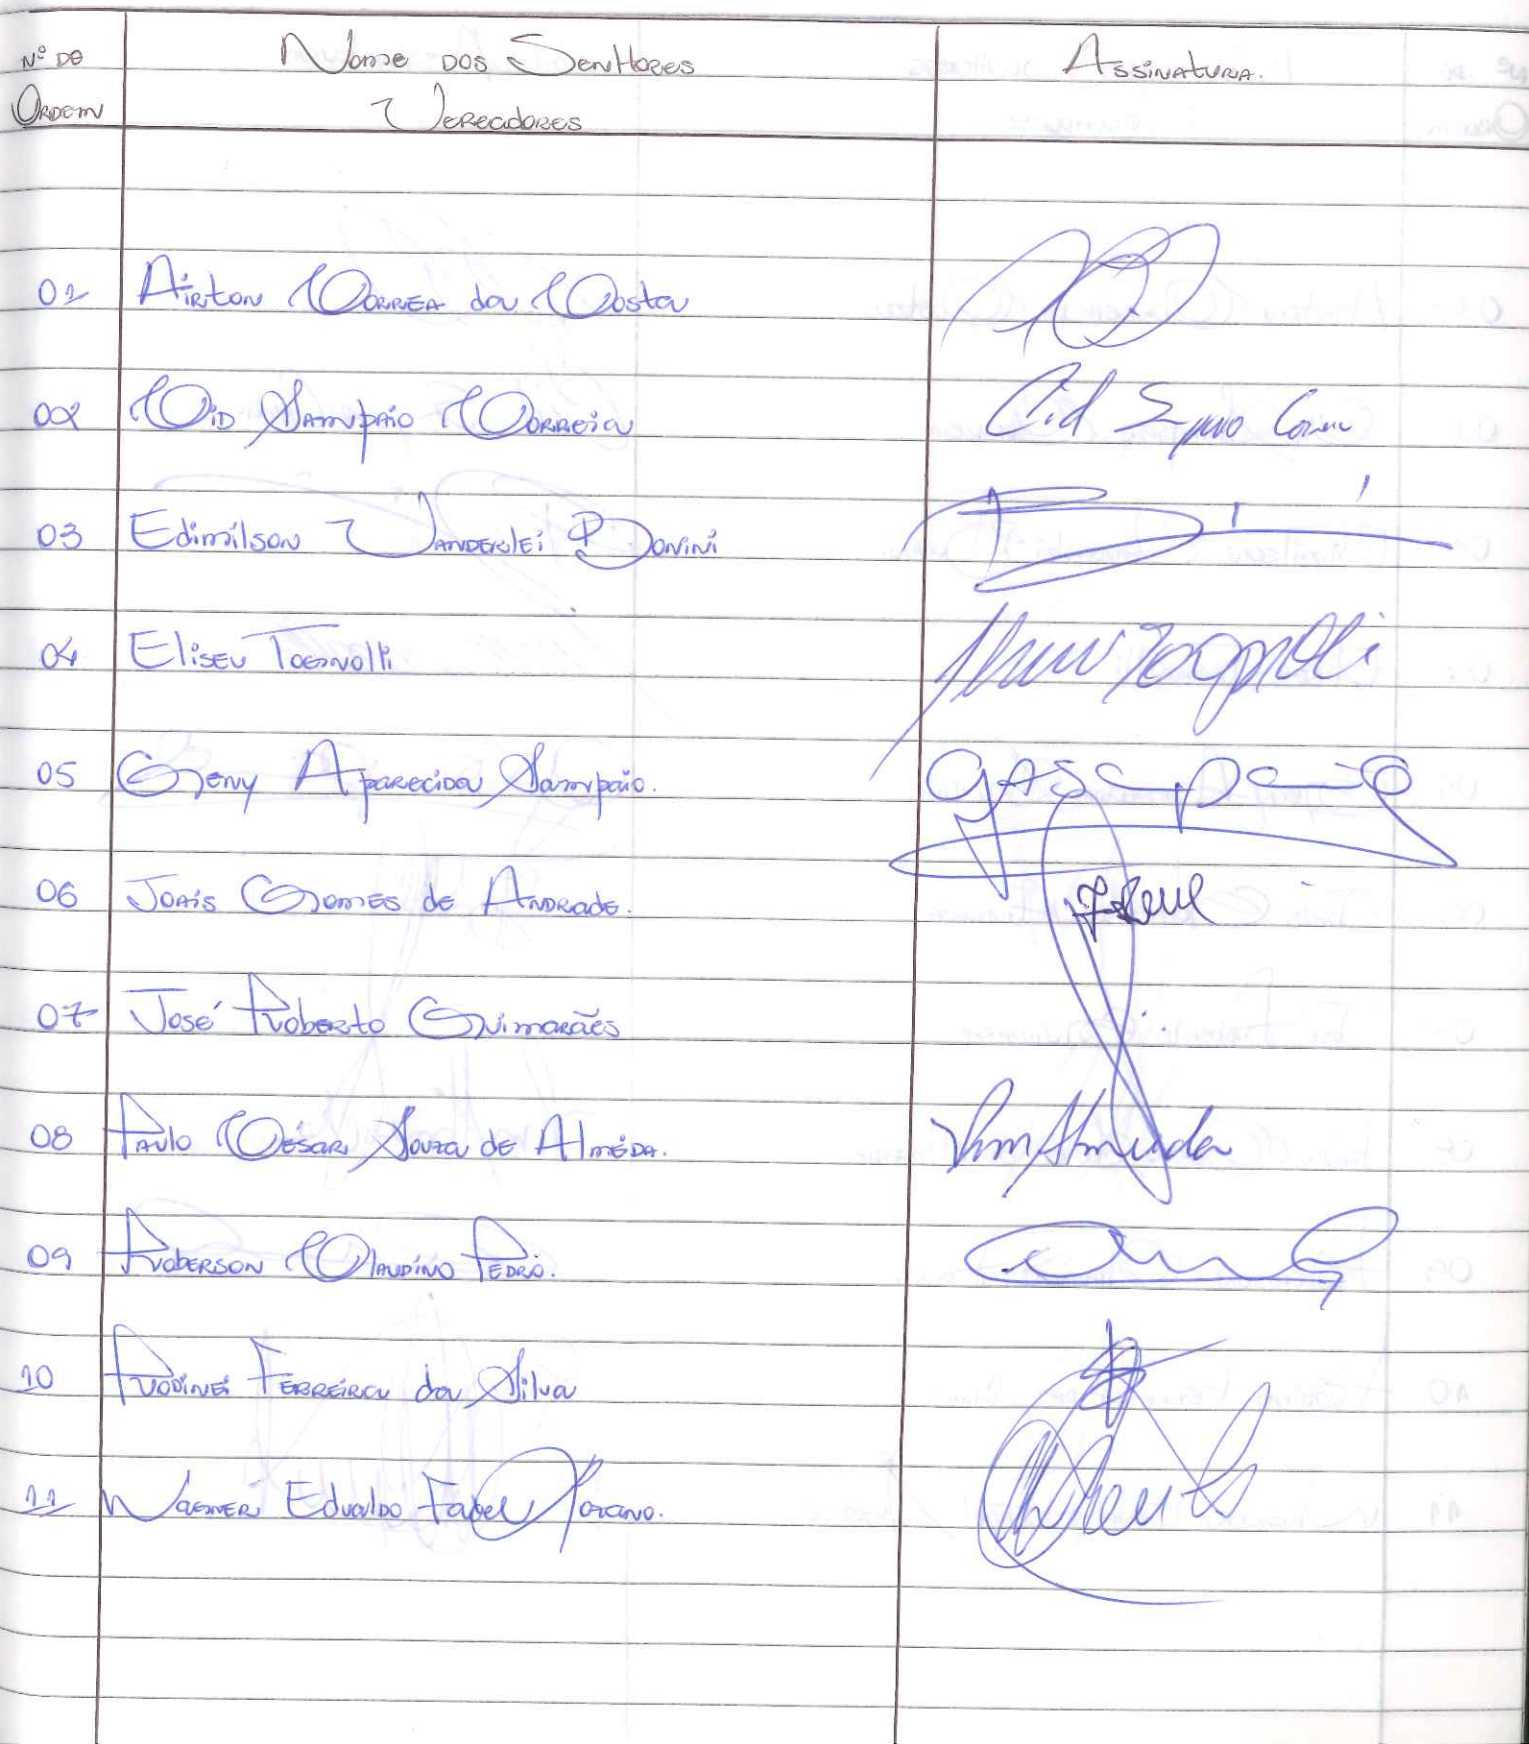 Nº DE Nome dos Senhores Assinatura.
Ordem Vereadores
01 Airton Correa da Costa
02 Cid Sampaio Correia Cid
03 Edimilson Vanderlei P Donini
04 Eliseu Tognolli Tognolli
05 Geny Aparecida Sampaio.
06 Joais Gomes de Andrade.
07 José Roberto Guimarães
08 Paulo César Souza de Alméda. Almeida
09 Roberson Claudino Pedro.
10 Rodinei Ferreira da Silva
11 Wagner Edvaldo